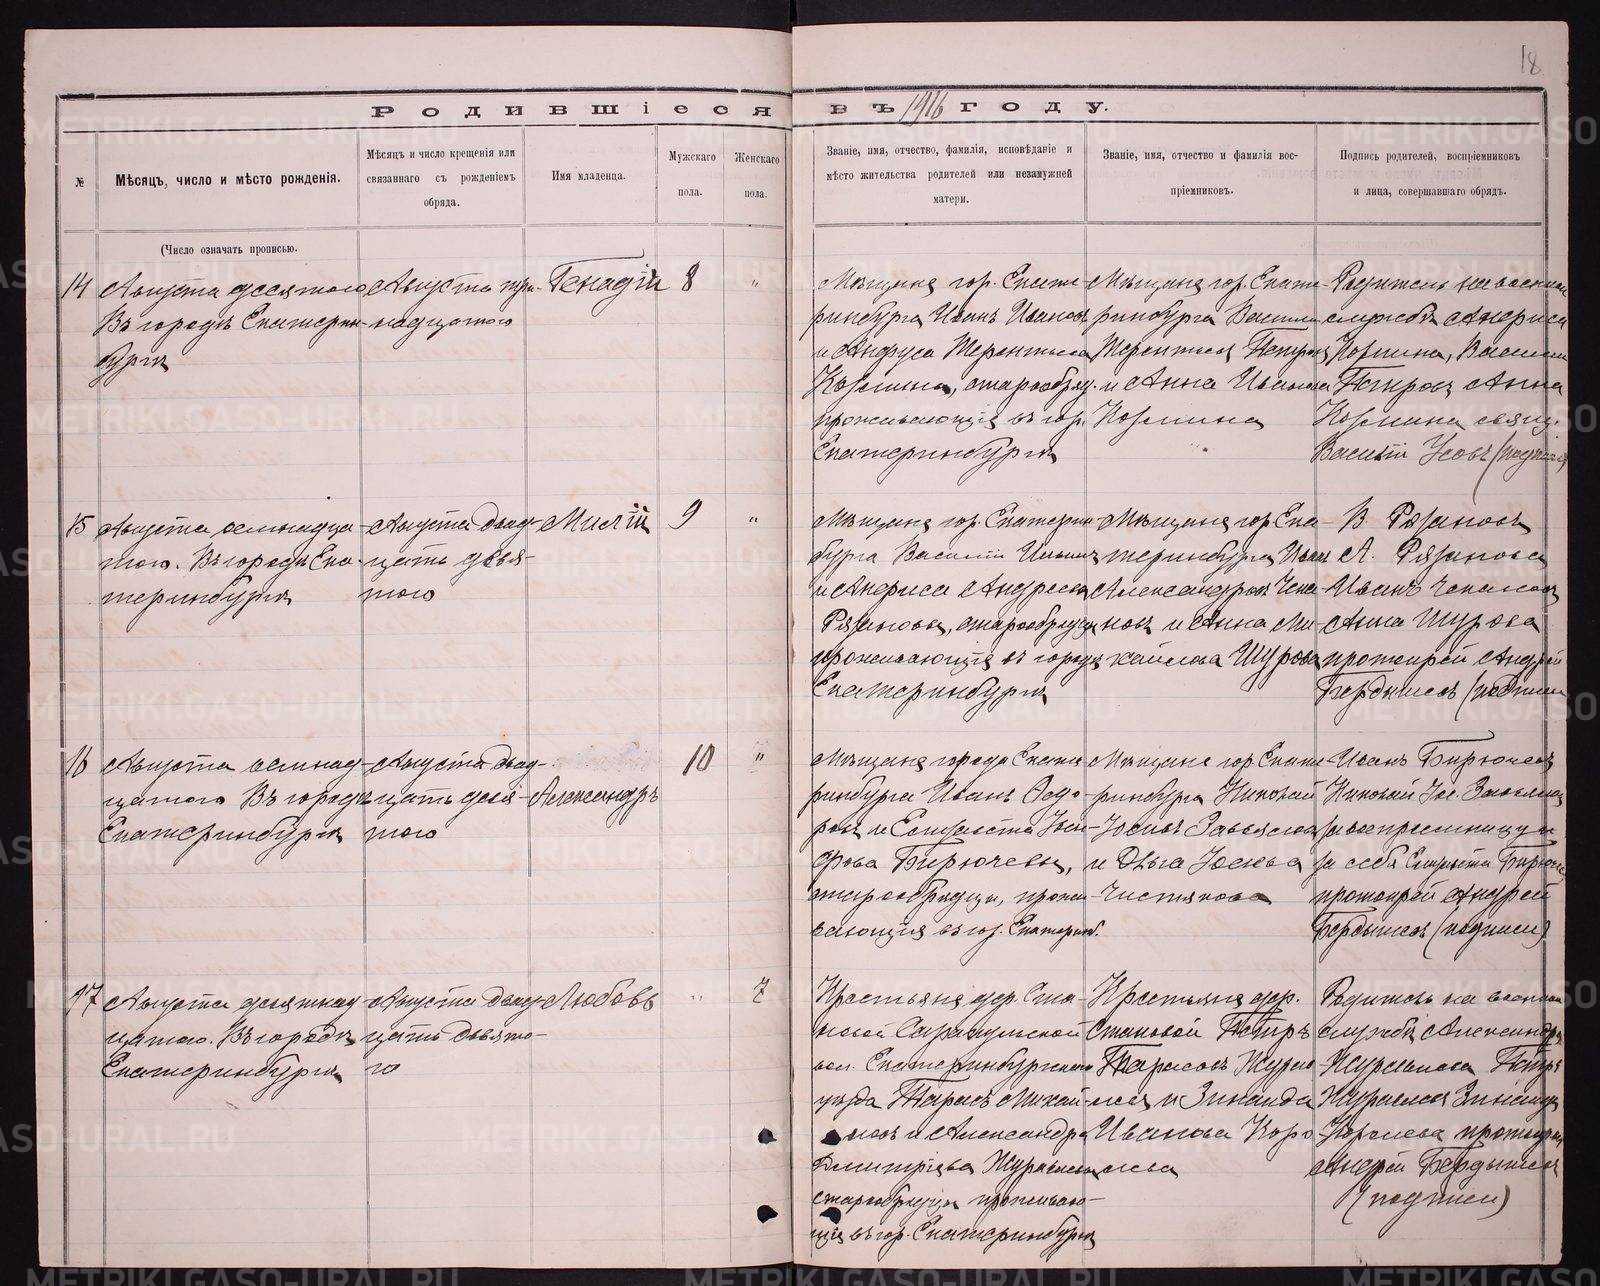 18
Родившіеся въ 1916 году.
№
Мѣсяцъ, число и мѣсто рожденія.
Мѣсяцъ и число крещенія или
связаннаго съ рожденіемъ
обряда.
Имя младенца.
Мужскаго
пола.
Женскаго
пола.
Званіе, имя, отчество, фамилія, исповѣданіе и
мѣсто жительства родителей или незамужней
матери.
Званіе, имя, отчество и фамилія вос-
пріемниковъ.
Подпись родителей, воспріемниковъ
и лица, совершавшаго обрядъ.
(Число означать прописью.
14
Августа десятаго
Въ городѣ Екатерин-
бургѣ
Августа три-
надцатого
Генадій
8
"
Мѣщане гор. Екате-
ринбурга Иванъ Ивановъ
и Терентьева
Козьмины, старообряд.
проживающіе въ гор.
Екатеринбургѣ
Мѣщане гор. Екате-
ринбурга Василій
Терентьевъ Петровъ
и Анна Иванова
Козьмина
Родитель на военной
службѣ
Козьмина, Василій
Петровъ Анна
Козьмина свящ.
Василій Усовъ (подписи)
15
Августа осемнадца-
таго. Въ городѣ Ека-
теринбургѣ
Августа двад-
цать девя-
того
Милій
9
"
Мѣщане гор. Екатерин-
бурга Василій
и Андреева
Рязановы, старообрядцы
проживающіе въ городѣ
Екатеринбургѣ
Мѣщане гор. Ека-
теринбурга Иванъ
Александровъ Чека-
новъ и Анна Ми-
хайлова Щурова
В. Рязановъ
А. Рязанова
Иванъ Чекановъ
Анна Щурова
протоіерей Андрей
Бердышевъ (подписи)
16
Августа осемнад-
цатого Въ городѣ
Екатеринбургѣ
Августа двад-
цать девя-
того
Александръ
10
"
Мѣщане города Екате-
ринбурга Иванъ Ѳедо-
ровъ и Елизавета
Бирючевы,
старообрядцы, прожи-
вающіе въ гор. Екатеринб.
Мѣщане гор. Екате-
ринбурга Николай
Завьяловъ
и
Чистякова
Иванъ Бирючевъ
Николай
за воспріемницу и
за себя Елизавета Бирюче
протоіерей Андрей
Бердышевъ (подписи)
17
Августа девятнад-
цатаго. Въ городѣ
Екатеринбургѣ
Августа двад-
цать девято-
го
Любовь
"
7
Крестьяне дер. Ста-
новой Сарапульской
вол. Екатеринбургскаго
уѣзда Тарасъ Михай-
ловъ и Александра
Дмитріева Журавлевы
старообрядцы проживаю-
щіе въ гор. Екатеринбургѣ
Крестьяне дер.
Становой Петръ
Тарасовъ Журав-
левъ и Зинаида
Иванова Коро-
лева
Родитель на военной
службѣ Александра
Журавлева Петръ
Журавлевъ Зинаида
Королева протоіерей
Андрей Бердышевъ
(подписи)
METRIKI.GASO-URAL.RU